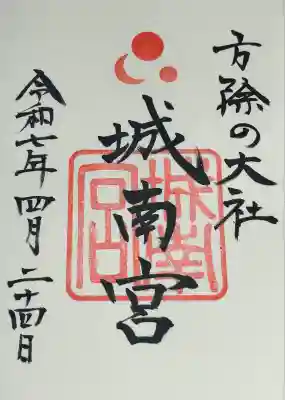 方除の大社
城南宮
令和七年 四月 二十四日
城南宮